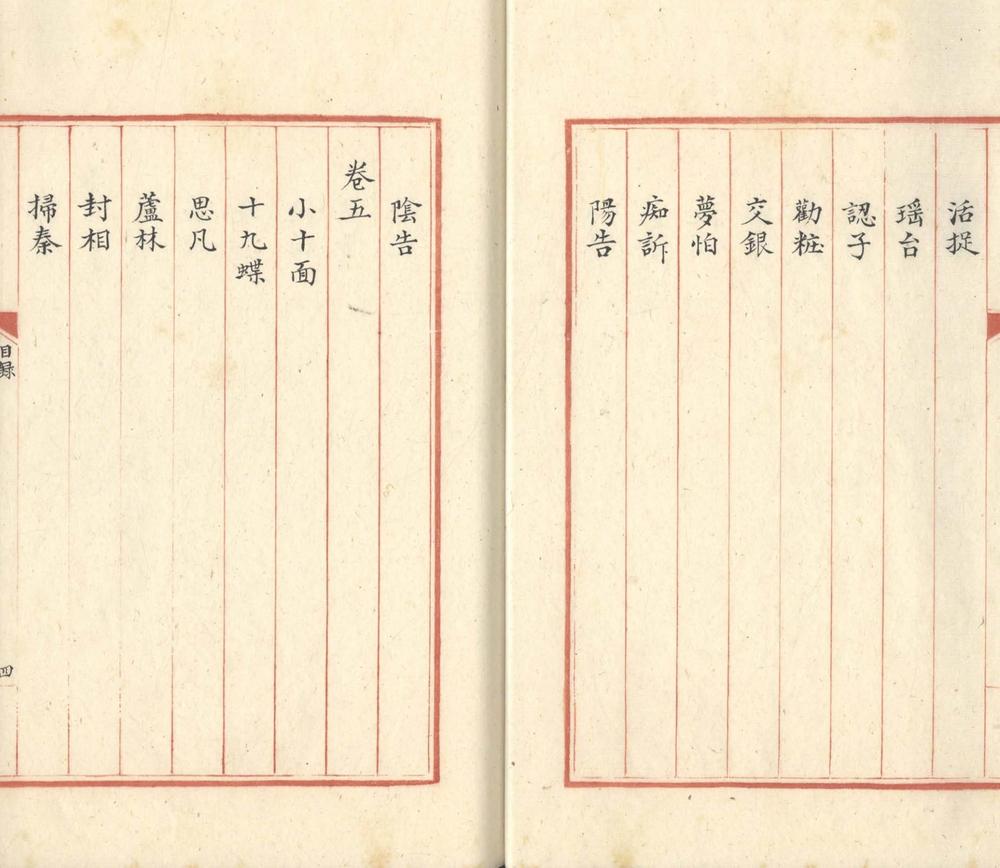 活捉
瑶台
認子
勸粧
交銀
夢怕
痴訴
陽告
陰告
卷五
小十面
十九蝶
思凡
蘆林
封相
掃秦
目録
四